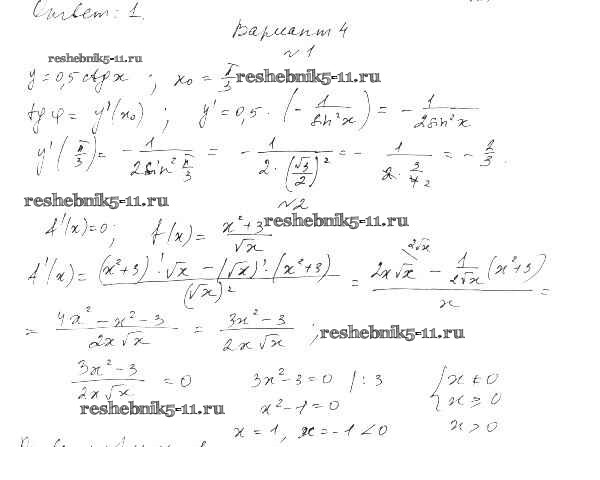 Ответ: 1.
Вариант 4
№1
reshebnik5-11.ru
y = 0,5 ctg x ; x₀ = π/3 reshebnik5-11.ru
tg φ = y'(x₀) ; y' = 0,5 · (- 1/sin²x) = - 1/(2sin²x)
y'(π/3) = - 1/(2sin² π/3) = - 1/(2·(√3/2)²) = - 1/(2·3/4₂) = - 2/3.
reshebnik5-11.ru №2
f'(x)=0; f(x) = (x²+3)/√x reshebnik5-11.ru
f'(x) = ((x²+3)'·√x - (√x)'·(x²+3))/(√x)² = (2x√x^(2√x) - 1/(2√x) (x²+3))/x =
= (4x² - x² - 3)/(2x√x) = (3x² - 3)/(2x√x) ; reshebnik5-11.ru
(3x² - 3)/(2x√x) = 0 3x² - 3 = 0 /:3 { x ≠ 0
reshebnik5-11.ru x² - 1 = 0 x ≥ 0
x = 1, x = -1 < 0 x > 0